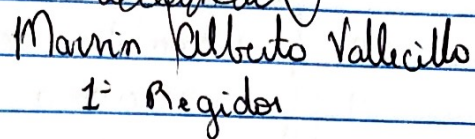 Marvin Alberto Vallecillo
1º Regidor